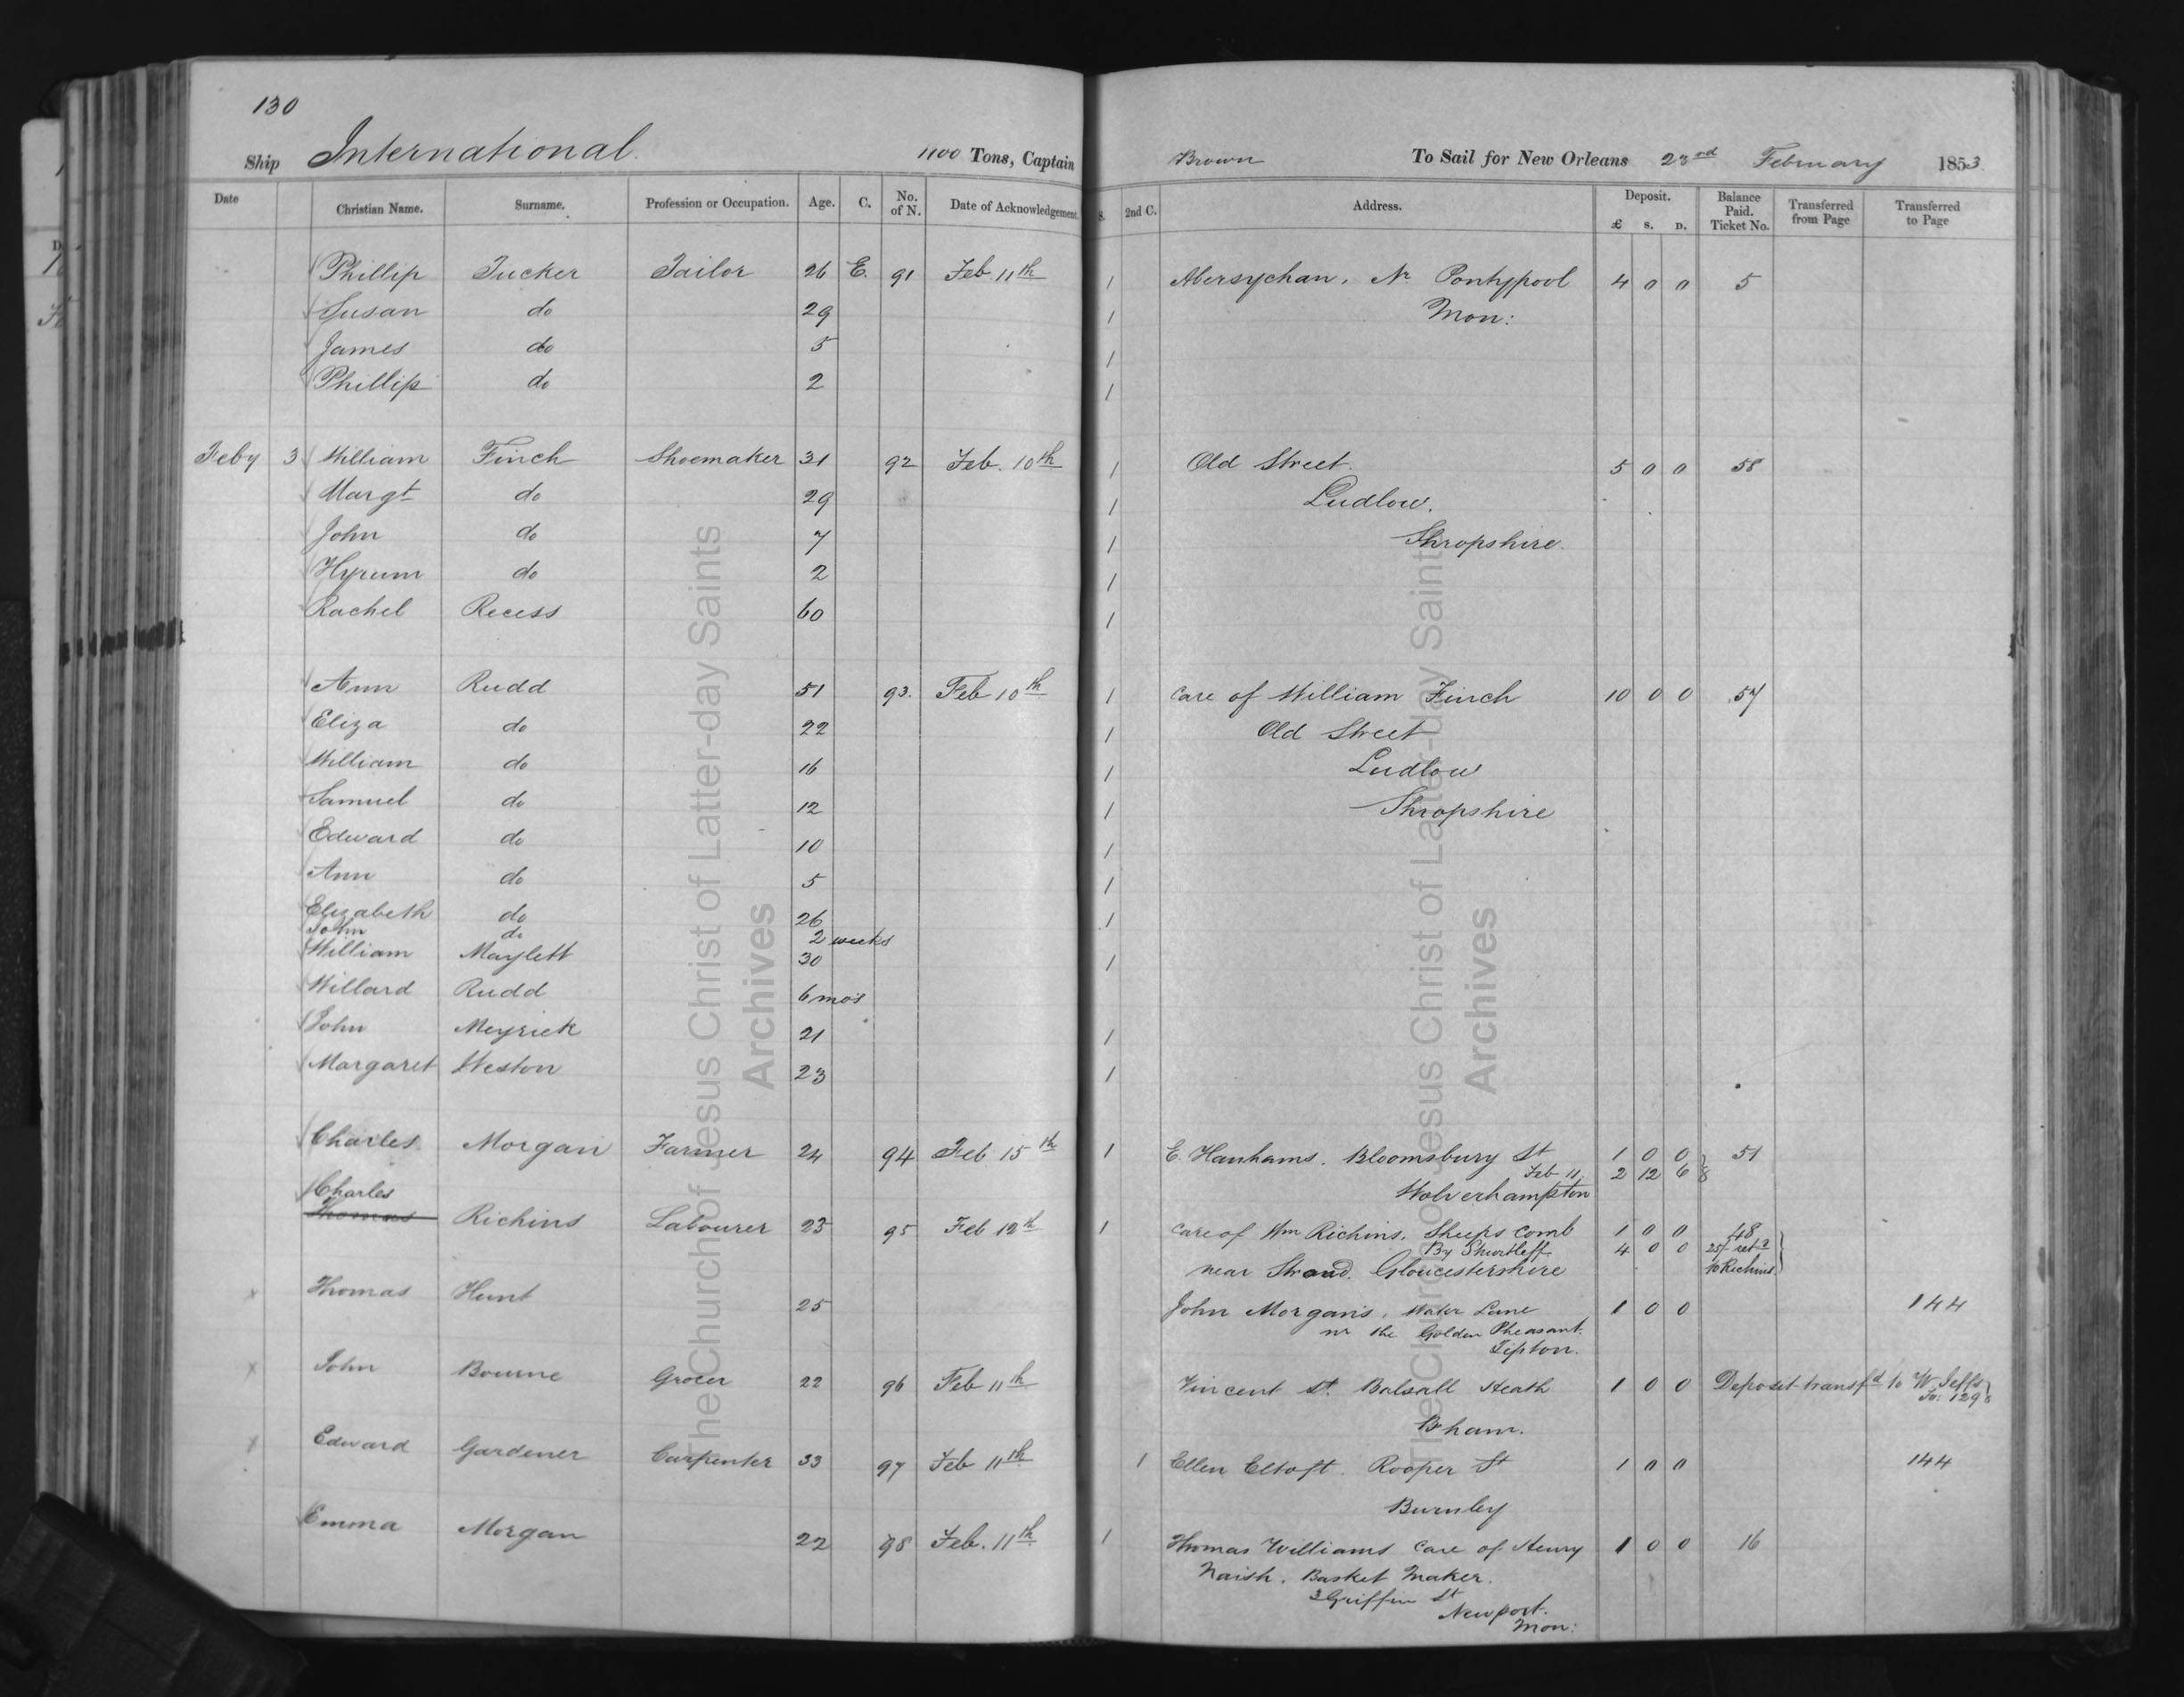 130
Ship International 1100 Tons, Captain Brown To Sail for New Orleans 23rd February 1853
Date Christian Name. Surname. Profession or Occupation. Age. C. No. of N. Date of Acknowledgement. S. 2nd C. Address. Deposit. £ s. D. Balance Paid. Ticket No. Transferred from Page Transferred to Page
Phillip Tucker Tailor 26 E. 91 Feb. 11th 1 Abersychan, Nr Pontypool 4 0 0 5
Susan do 29 1 Mon:
James do 5 1
Phillip do 2 1
Feby 3 William Finch Shoemaker 31 92 Feb. 10th 1 Old Street. 5 0 0 58
Margt do 29 1 Ludlow.
John do 7 1 Shropshire.
Hyrum do 2 1
Rachel Recess 60 1
Ann Rudd 51 93. Feb 10th 1 care of William Finch 10 0 0 57
Eliza do 22 1 Old Street
William do 16 1 Ludlow
Samuel do 12 1 Shropshire
Edward do 10 1
Ann do 5 1
Elizabeth do 26 1
John do 2 weeks
William Maylett 30 1
Willard Rudd 6 mos
John Meyrick 21 1
Margaret Weston 23 1
Charles Morgan Farmer 24 94 Feb 15th 1 E. Hanhams. Bloomsbury St 1 0 0 51
Feb 11, 2 12 6
Wolverhampton
Charles
Thomas Richins Labourer 23 95 Feb 12th 1 care of Wm Richins, Sheeps comb 1 0 0 48
By Shurtleff 4 0 0 25/- retd
near Stroud. Gloucestershire to Richins
x Thomas Hunt 25 John Morgans, Water Lane 1 0 0 144
nr the Golden Pheasant.
Tipton.
x John Bourne Grocer 22 96 Feb 11th Vincent St. Balsall Heath 1 0 0 Deposit transfd to W Jeffs
Fo: 129
Bham.
x Edward Gardener Carpenter 33 97 Feb 11th 1 Ellen Eltoft. Rooper St 1 0 0 144
Burnley
Emma Morgan 22 98 Feb. 11th 1 Thomas Williams care of Henry 1 0 0 16
Naish, Basket Maker.
3 Griffin St
Newport.
Mon:
The Church of Jesus Christ of Latter-day Saints
Archives
The Church of Jesus Christ of Latter-day Saints
Archives